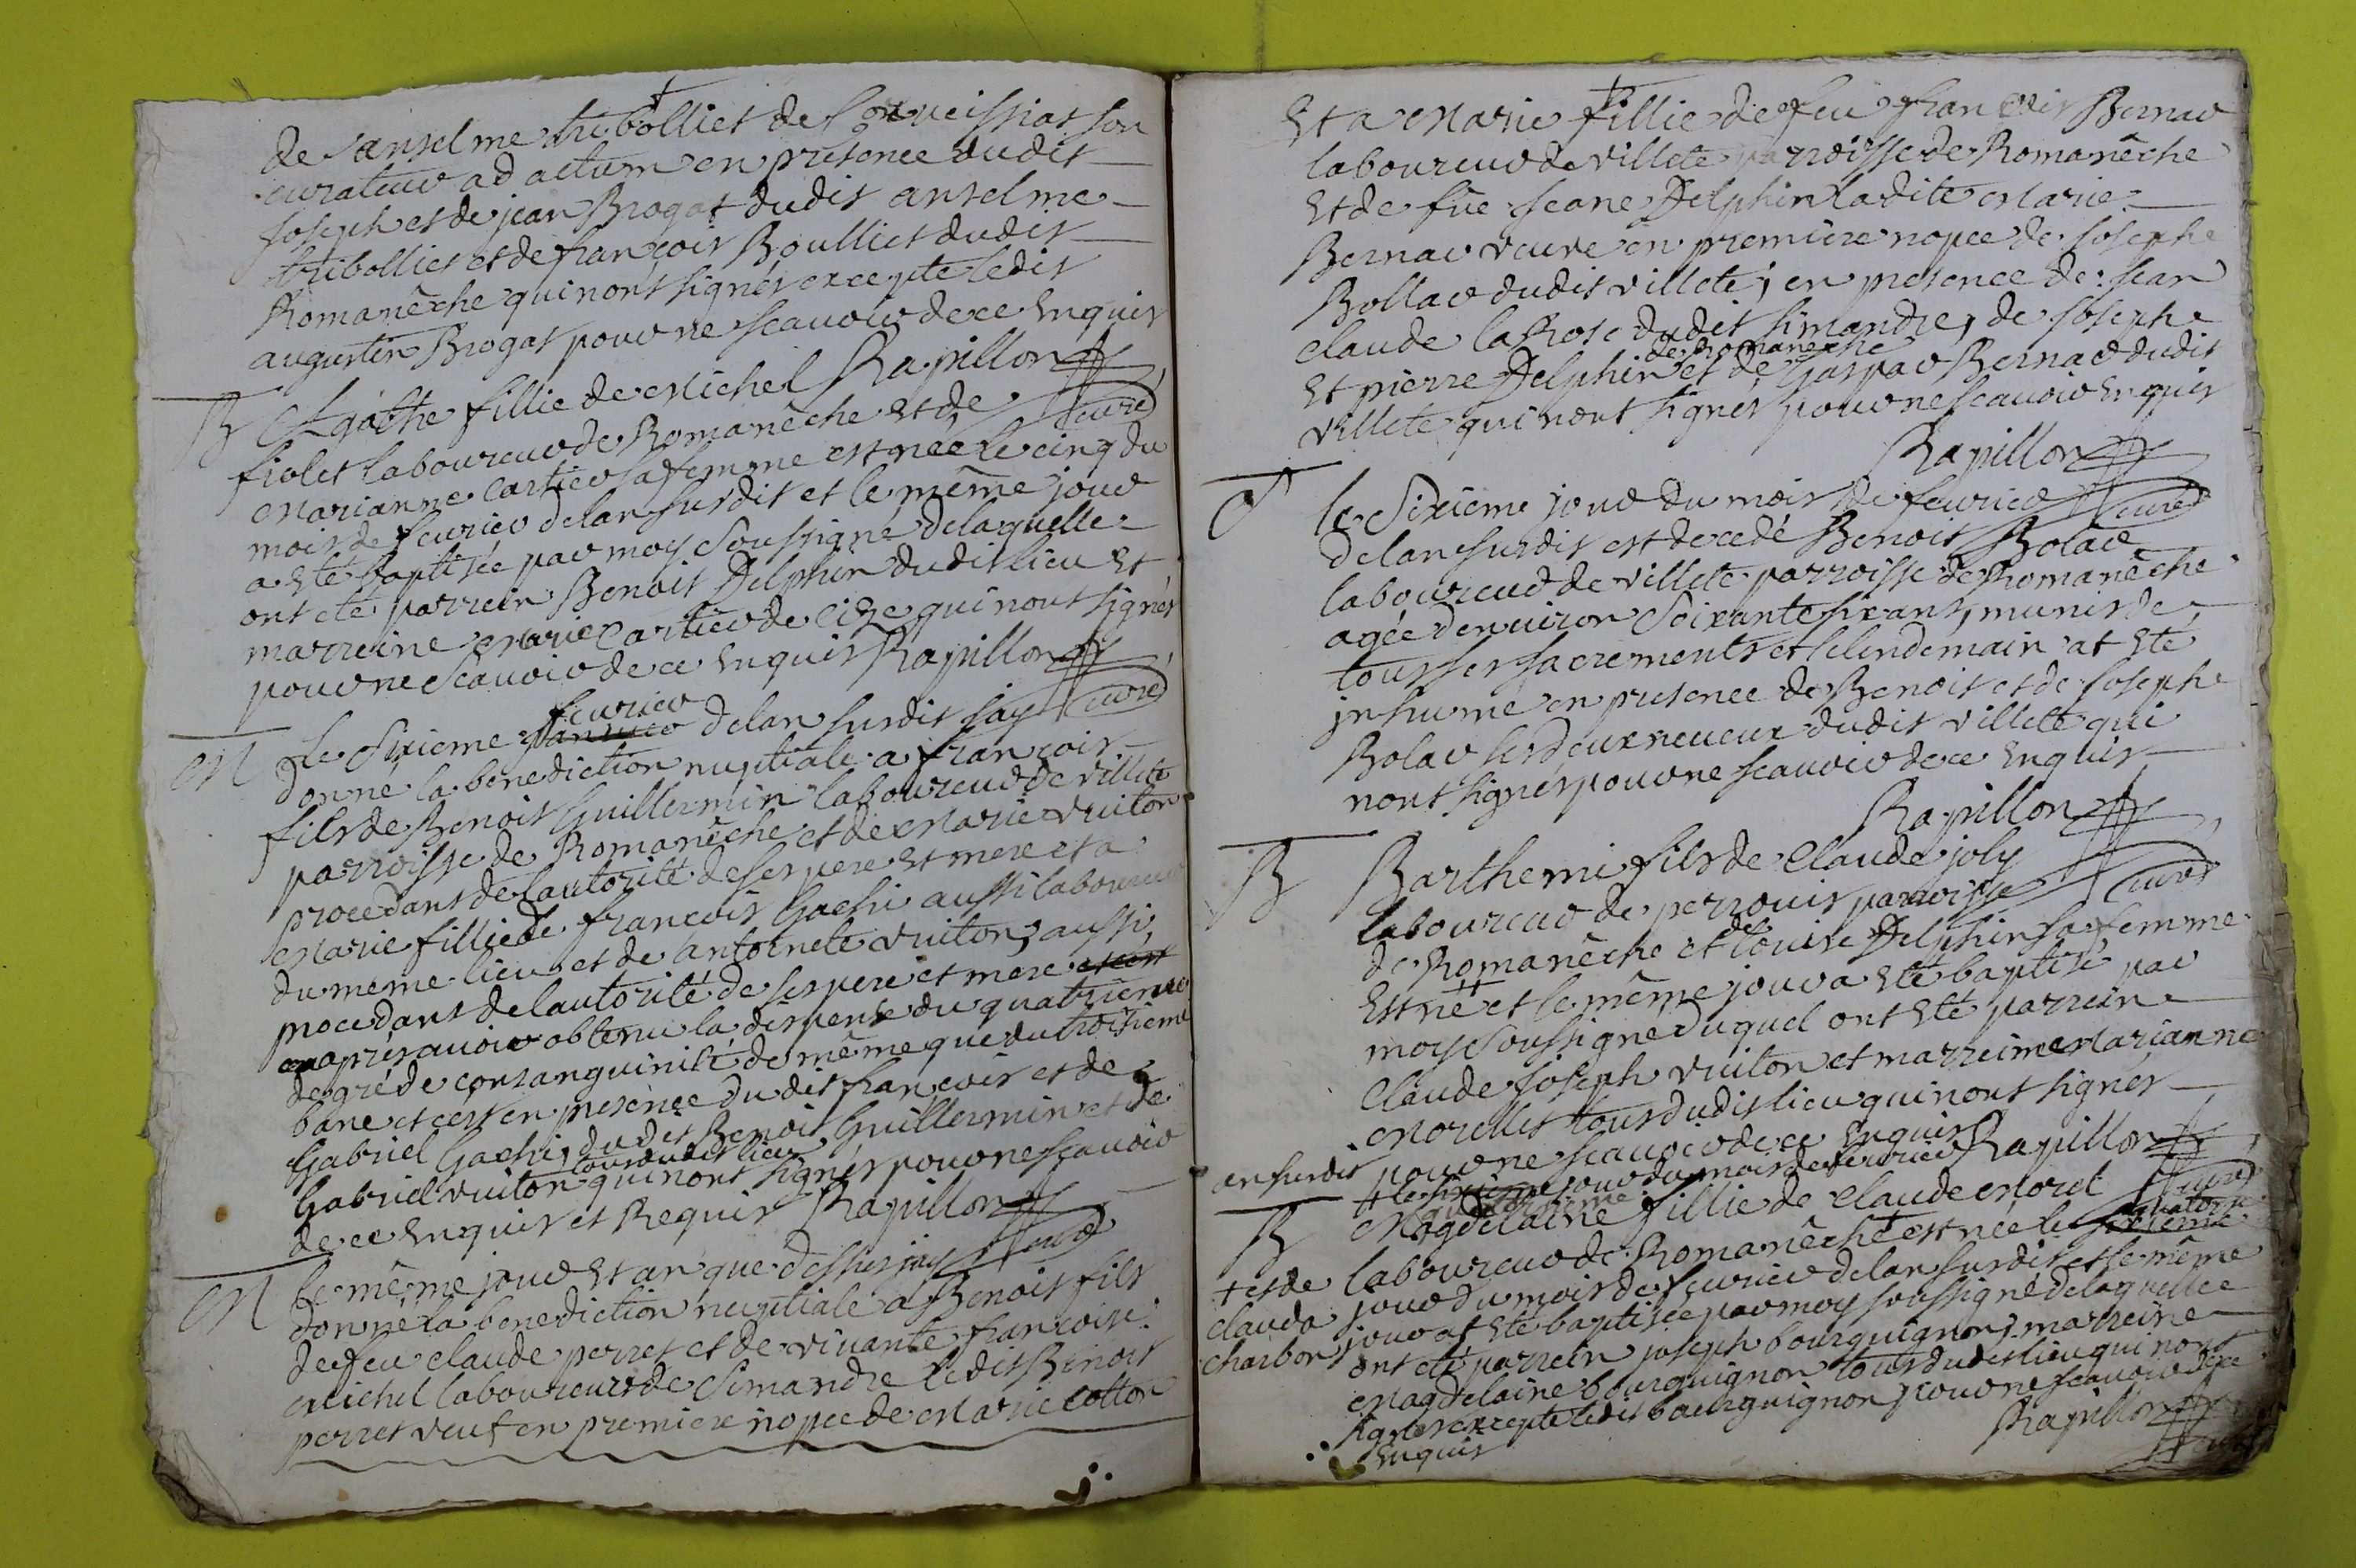 de anselme tribolliet de son
curateur ad actum en presence dudit
Joseph et de jean Brogat dudit anselme
tribolliet et de francois Boulliet dudit
Romanêche qui nont signés excepte ledit
augustin Brogat pour ne scauoir de ce Enquis
Rapillon curé
B Agathe fillie de Michel
fiolet laboureur de Romanêche et de
Marianne Cartier sa femme est née le cinq du
mois de feurier delan susdit et le même jour
a Eté baptisée par moy soussigné delaquelle
ont eté parrein Benoit Delphin dudit lieu Et
marreine Marie Cartier de Cize qui nont signés
pour ne Scauoir de ce Enquis Rapillon curé
feurier
M Le Sixieme janvier delan susdit jay
donné la benediction nuptiale a francois
fils de Benoit Guillermin laboureur de villete
parroisse de Romanêche et de Marie vuiton
procedant de lautorité de ses pere et mere et a
Marie fillie de francois Gachi aussi laboureur
du meme lieu et de antoinete vuiton, aussi
procedant de lautorité de ses pere et mere
apres auoir obtenu la dispense du quatrieme
degré de consanguinité de même que du troisieme
banc et cest en presence du dit francois et de
Gabriel Gachi, dudit Benoit Guillermin et de
tous dudit lieu
Gabriel vuiton qui nont signés pour ne scauoir
de ce Enquis et Requis Rapillon curé
M le même jour et an que dessus jay
donné la benediction nuptiale a Benoit fils
de feu claude perret et de viuante francoise
Michel laboureur de Simandre le dit Benoit
perret veuf en premiere nopce de Marie Cotton
Et a Marie fillie de feu francois Bernar
laboureur de villete parroisse de Romanêche
Et de fue Jeane Delphin ladite Marie
Bernar veuve en premiere nopce de Joseph
Bollar dudit villete, en presence de jean
claude la Rose dudit Simandre, de Joseph
de Romaneche
Et pierre Delphin et de Gaspar Bernar dudit
villete qui nont signés pour ne scauoir Enquis
Rapillon curé
le Sixieme jour du mois de feurier
delan susdit est decedé Benoit Bolar
laboureur de villete parroisse de Romanêche
agée denuiron Soixante six ans, munis de
tous ses sacrements et le lendemain at Eté
jnhumé en presence de Benoit et de Joseph
Bolar ses deux neueux dudit villete qui
nont signés pour ne scauoir de ce Enquis
Rapillon curé
B Barthemi fils de Claude joly
laboureur de perrouis parroisse
de
de Romanêche et louise Delphin sa femme
Est né et le même jour a Eté baptisé par
moy Soussigné duquel ont Eté parrein
Claude Joseph vuiton et marreine Marianne
Morellet tous dudit lieu qui nont signés
pour ne scauoir de ce Enquis Rapillon curé
an susdit
+ le sixieme jour du mois de feurier
quatorzieme
B Magdelaine fillie de Claude Morel
quatorze
laboureur de Romanêche + est née le sixieme
+ et de
clauda
charbon
jour du mois de feurier delan susdit et le même
jour at Eté baptisée par moy soussigné delaquelle
ont eté parrein joseph bourguignon, marreine
Magdelaine bourguignon tous dudit lieu qui nont
signés excepte ledit bourguignon pour ne scauoir de ce
Enquis
Rapillon curé